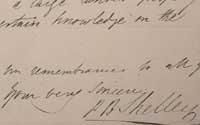 a large
certain knowledge in the
remembrances to all
Your very sincere
P B Shelley